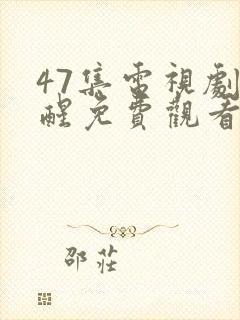 47集雷視劇
醒免費觀看
邵莊